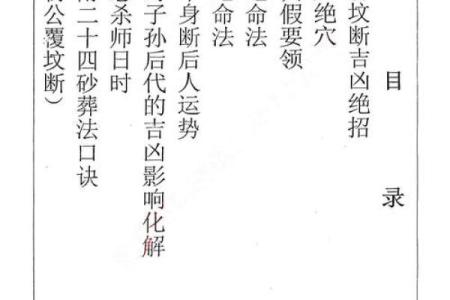 目录
坟断吉凶绝招
绝穴
假要领
命法
命法
身断后人运势
子孙后代的吉凶影响化解
杀师日时
二十四砂葬法口诀
公覆坟断）